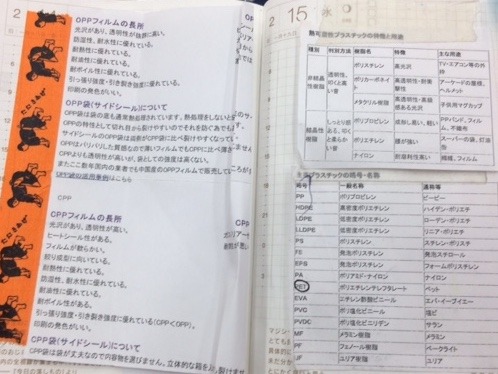 2
OPPフィルムの長所
光沢があり、透明性が抜群に高い。
防湿性、耐水性に優れている。
耐熱性に優れている。
耐油性に優れている。
耐ボイル性に優れている。
引っ張り強度・引き裂き強度に優れている。
印刷の発色がいい。
OPP袋(サイドシール)について
OPP袋は袋の底も通常熱処理されています。熱処理をしないと
OPPの特性として切れ目から裂けやすいのでそれを防ぐ為で
サイドシールのOPP袋は底部がCPP袋に比べ裂けやすくなってい
OPPはパリパリした質感なので薄いフィルムでもCPPに比べ
CPPよりも透明性が高いが、袋としての強度は高くない。
またここ数年国内の業者でも中国産のOPPフィルムで販売している
OPP袋の活用事例はこちら
CPP
CPPフィルムの長所
光沢があり、透明性が高い。
ヒートシール性がある。
フィルムが軟らかい。
絞り成型に向いている。
耐熱性に優れている。
防湿性、耐水性に優れている。
耐油性に優れている。
耐ボイル性がある。
引っ張り強度・引き裂き強度に優れている(OPP＜CPP)。
印刷の発色がいい。
CPP袋(サイドシール)について
CPP袋は袋が丈夫なので内容物を選びません。立体的な箱を
2 15 水
種別 判別方法 樹脂名 特徴 主な用途
非結晶性樹脂 透明性、叩くと高い音
ポリスチレン 高光沢 TV・エアコン等の外枠
ポリカーボネイト 高透明性・耐衝撃性 アーケードの屋根、ヘルメット
メタクリル樹脂 高透明性・高級感ある光沢 子供用マグカップ
結晶性樹脂 しっとり感ある、叩くと柔らかい音
ポリプロピレン 成型し易い、軽い PPバンド、フィルム、不織布
ポリエチレン 腰が強い フィルム、ポリタンク
ナイロン 耐溶剤性素い 機構、フィルム
主なプラスチックの略号・名称
略号 一般名称 通称等
PP ポリプロピレン ピーピー
HDPE 高密度ポリエチレン ハイデン・ポリエチ
LDPE 低密度ポリエチレン ローデン・ポリエチ
LLDPE 低密度ポリエチレン リニア・ポリエチ
PS ポリスチレン スチレン・スチロール
FS 発泡ポリスチレン 発泡スチロール
EPS 発泡ポリスチレン フォームポリスチレン
PA ポリアミド・ナイロン ナイロン
PET ポリエチレンテレフタレート ペット
EVA エチレン酢酸ビニール エバ・イーブイエー
PVC ポリ塩化ビニール 塩ビ
PVDC ポリ塩化ビニリデン サラン
MF メラミン樹脂 メラミン
PF フェノール樹脂 ベークライト
UF ユリア樹脂 ユリア